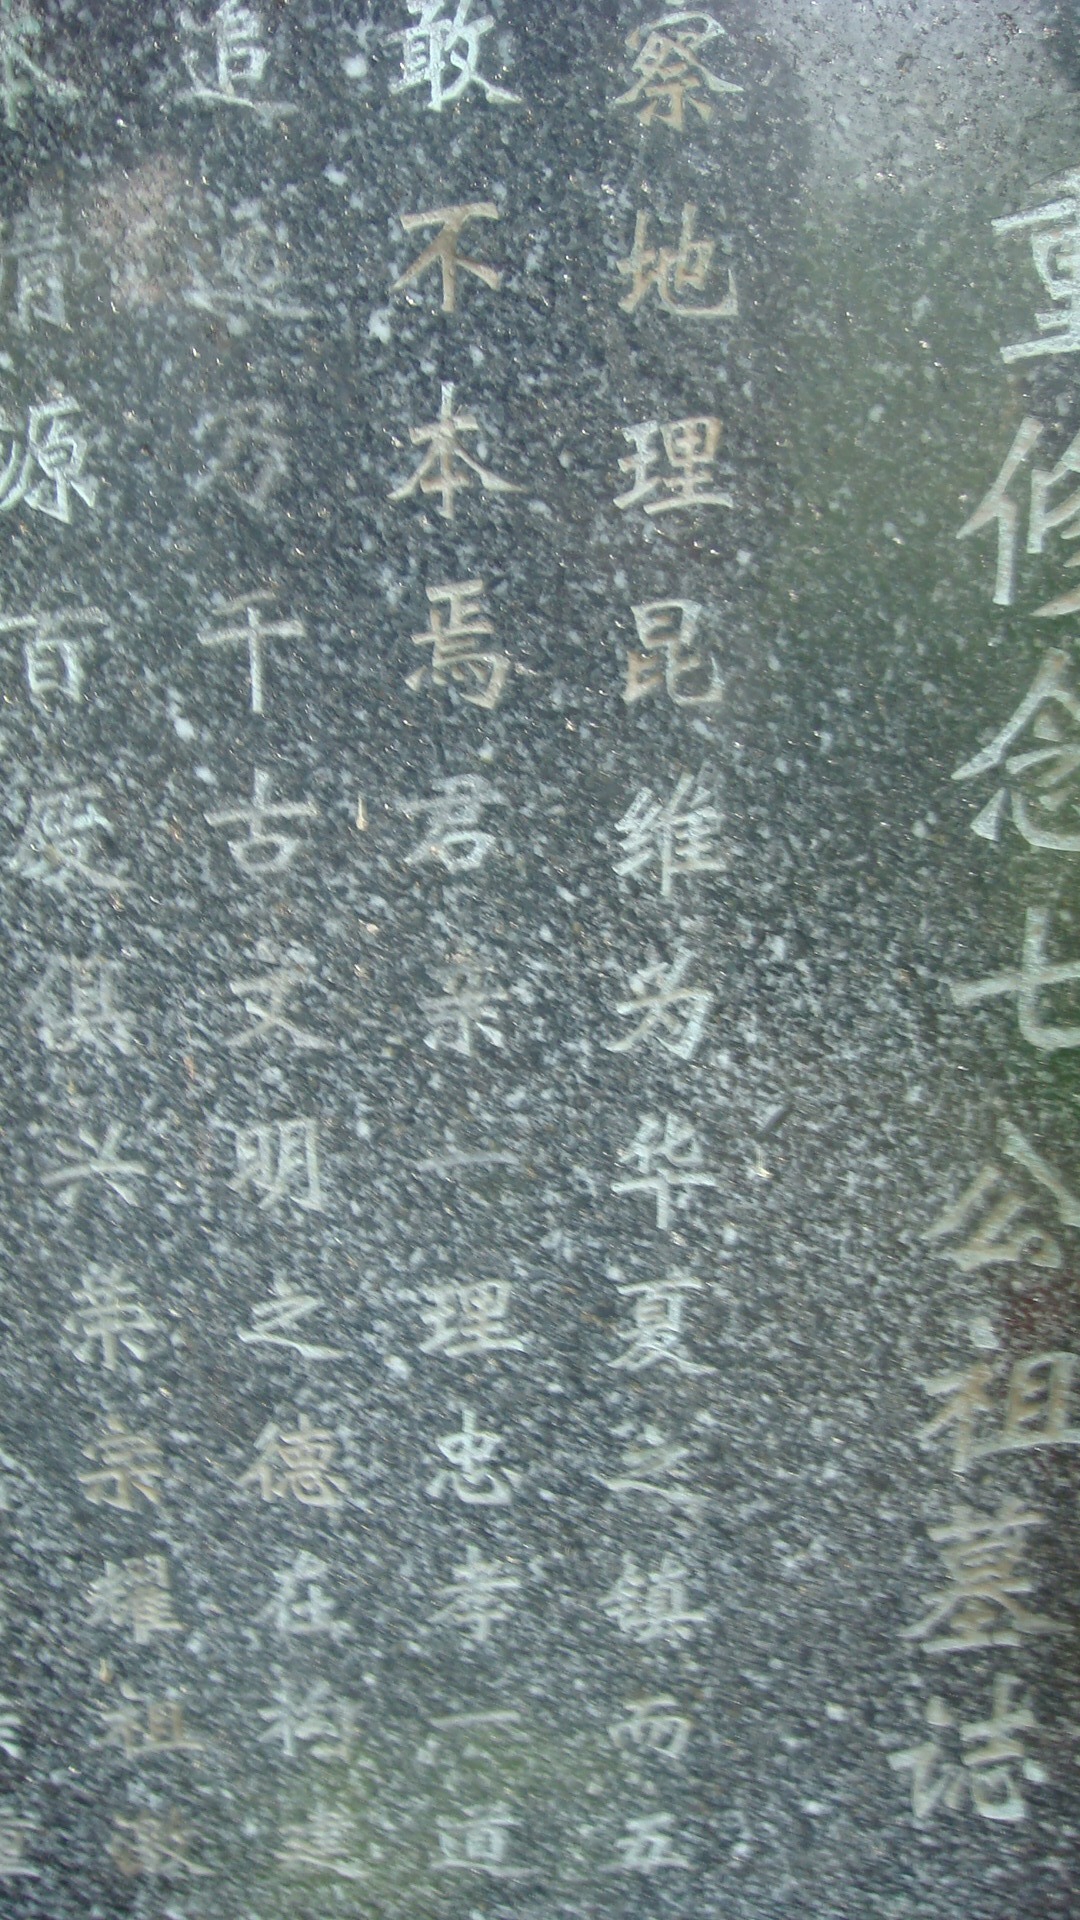 重修念七公祖墓志
察地理昆维为华夏之镇而五
敢不本焉君亲一理忠孝一道
追远万千古文明之德在构建
清源百废俱兴荣宗耀祖激